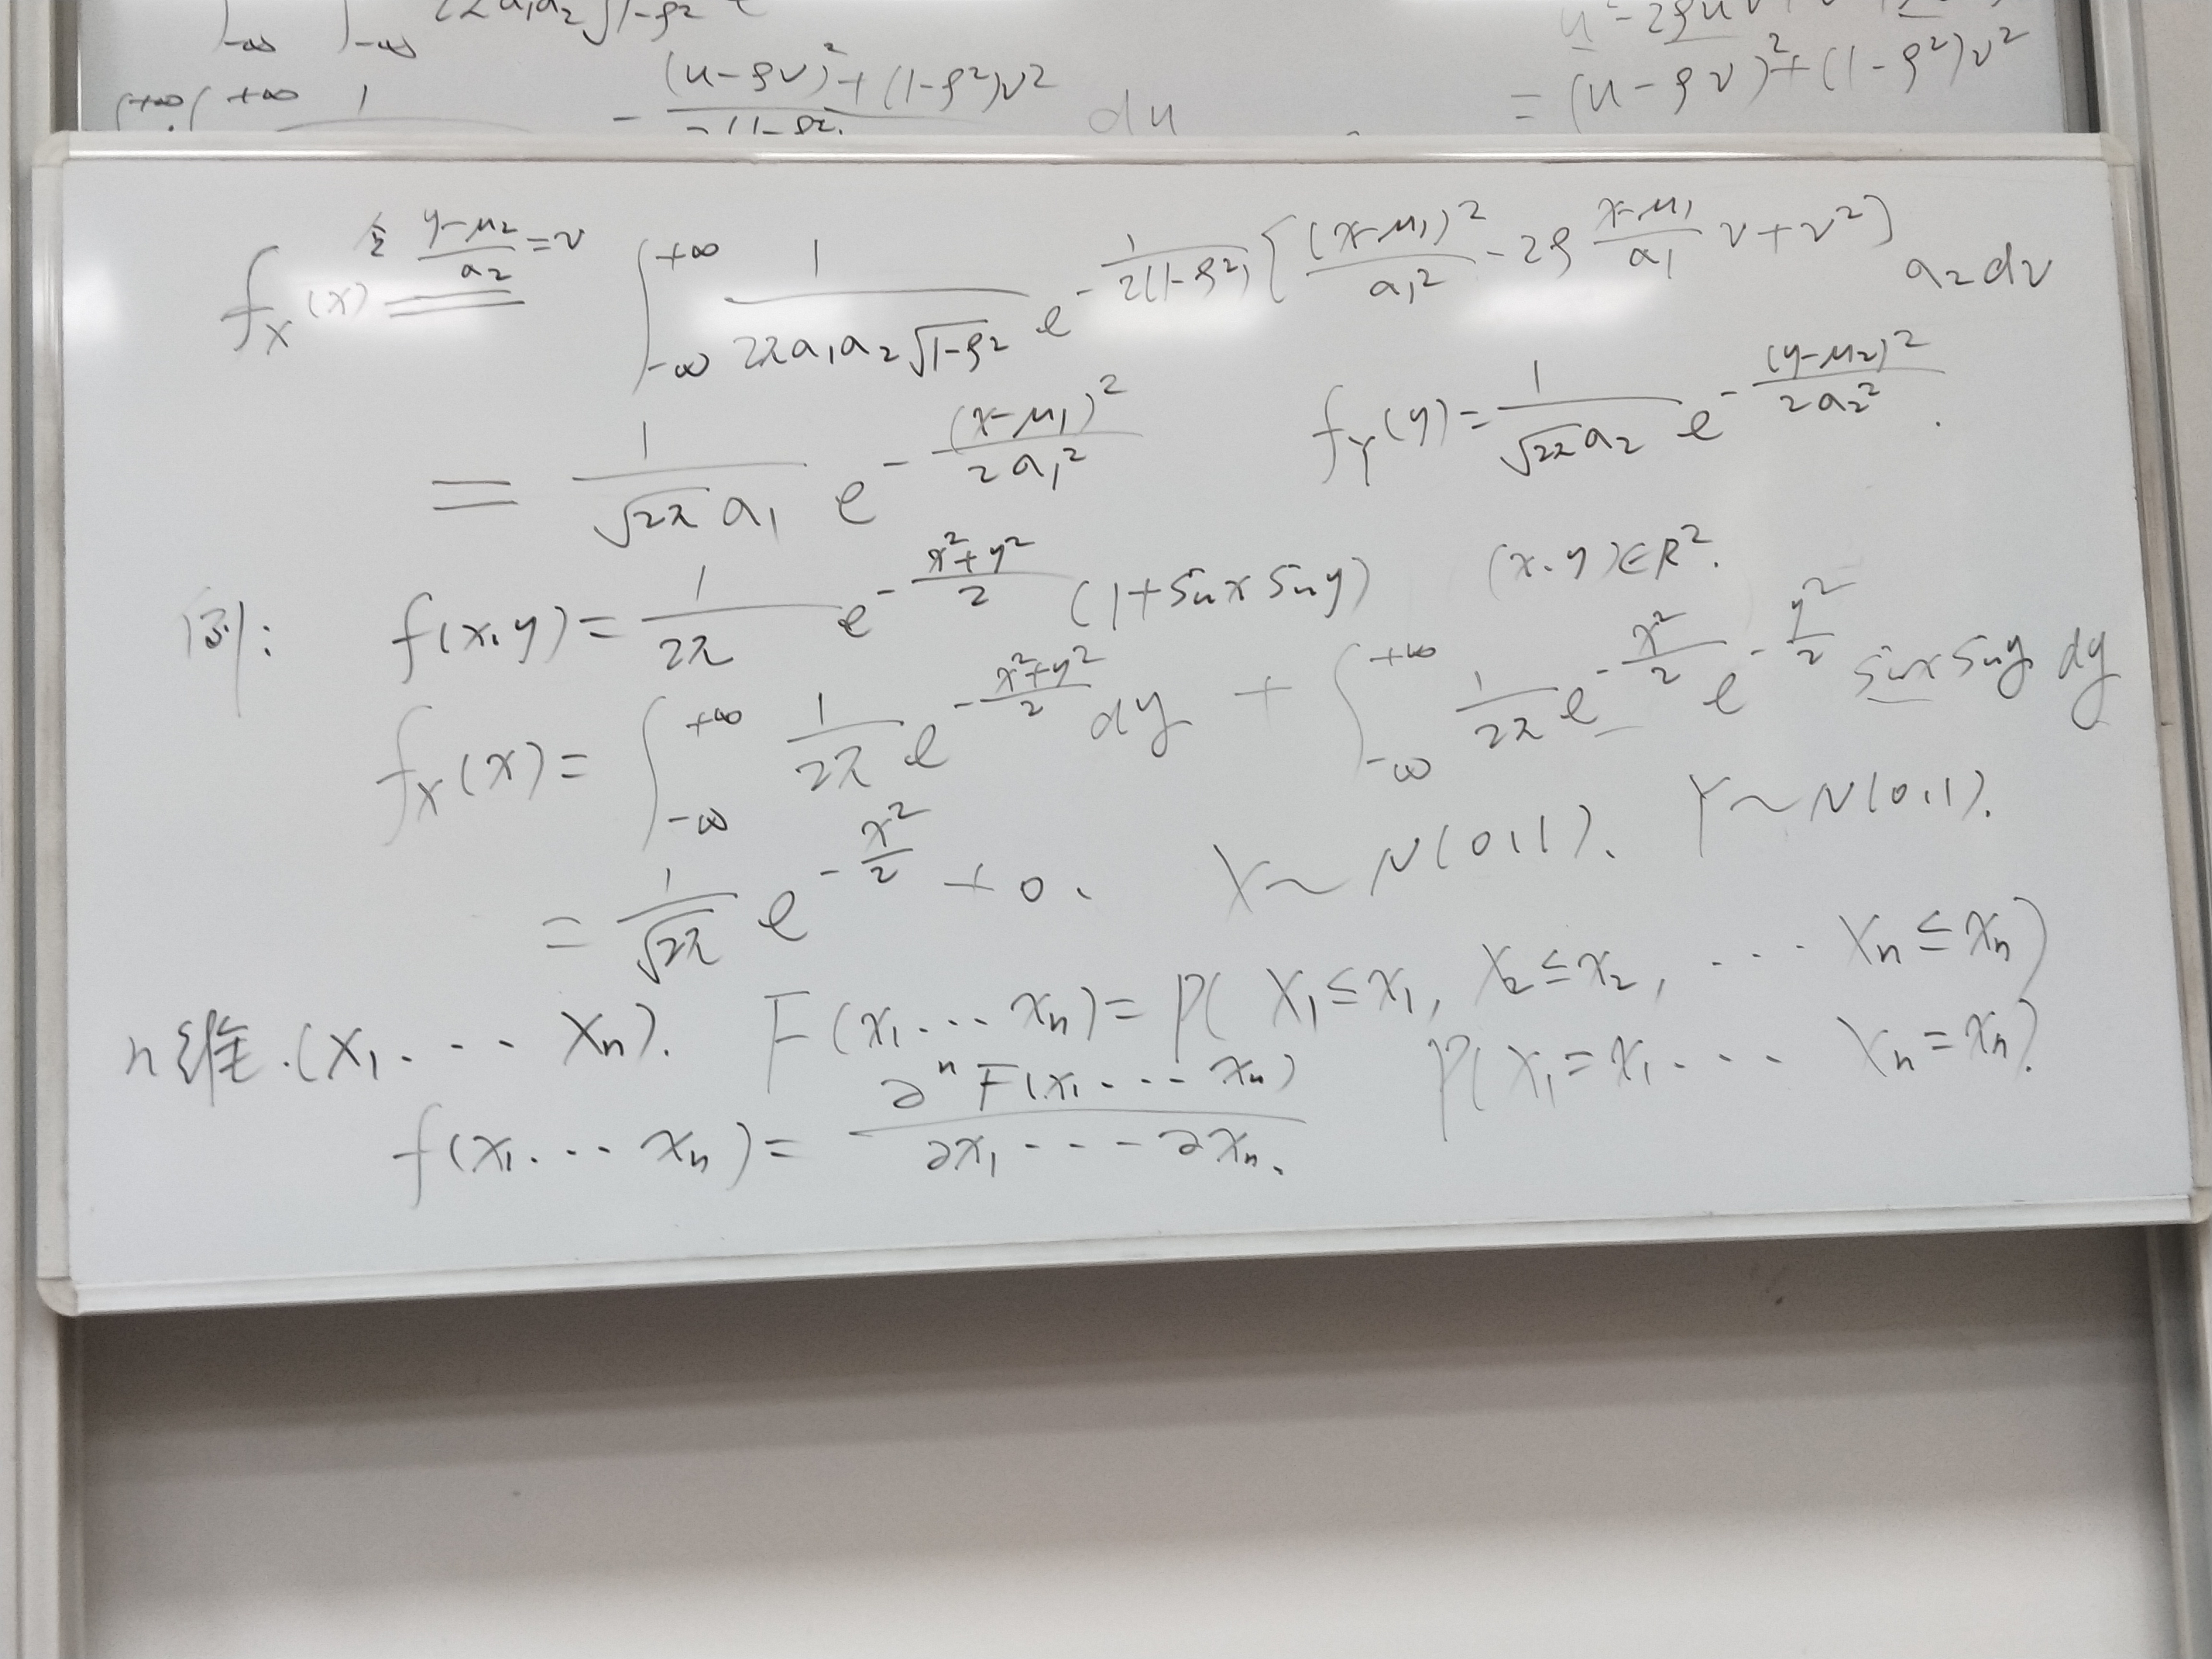 -∞ -∞ 2πa₁a₂√1-ρ² e
u²-2ρuv
= (u-ρv)²+(1-ρ²)v²
+∞ +∞ 1 - (u-ρv)²+(1-ρ²)v² du
f_X(x) 令 (y-μ₂)/a₂=v ∫_{-∞}^{+∞} 1/(2πa₁a₂√(1-ρ²)) e^{-1/(2(1-ρ²)) [(x-μ₁)²/a₁² - 2ρ (x-μ₁)/a₁ v+v²]} a₂dv
= 1/(√2π a₁) e^{-(x-μ₁)²/(2a₁²)} f_Y(y)= 1/(√2π a₂) e^{-(y-μ₂)²/(2a₂²)}.
例: f(x,y)= 1/(2π) e^{-(x²+y²)/2} (1+sinx siny) (x,y)∈R².
f_X(x)= ∫_{-∞}^{+∞} 1/(2π) e^{-(x²+y²)/2} dy + ∫_{-∞}^{+∞} 1/(2π) e^{-x²/2} e^{-y²/2} sinx siny dy
= 1/√2π e^{-x²/2} + 0. X~N(0,1). Y~N(0,1).
n维.(X₁... Xₙ). F(x₁... xₙ)= P( X₁≤x₁, X₂≤x₂, ... Xₙ≤xₙ)
f(x₁... xₙ)= ∂ⁿF(x₁... xₙ)/(∂x₁...∂xₙ). P(X₁=x₁... Xₙ=xₙ).